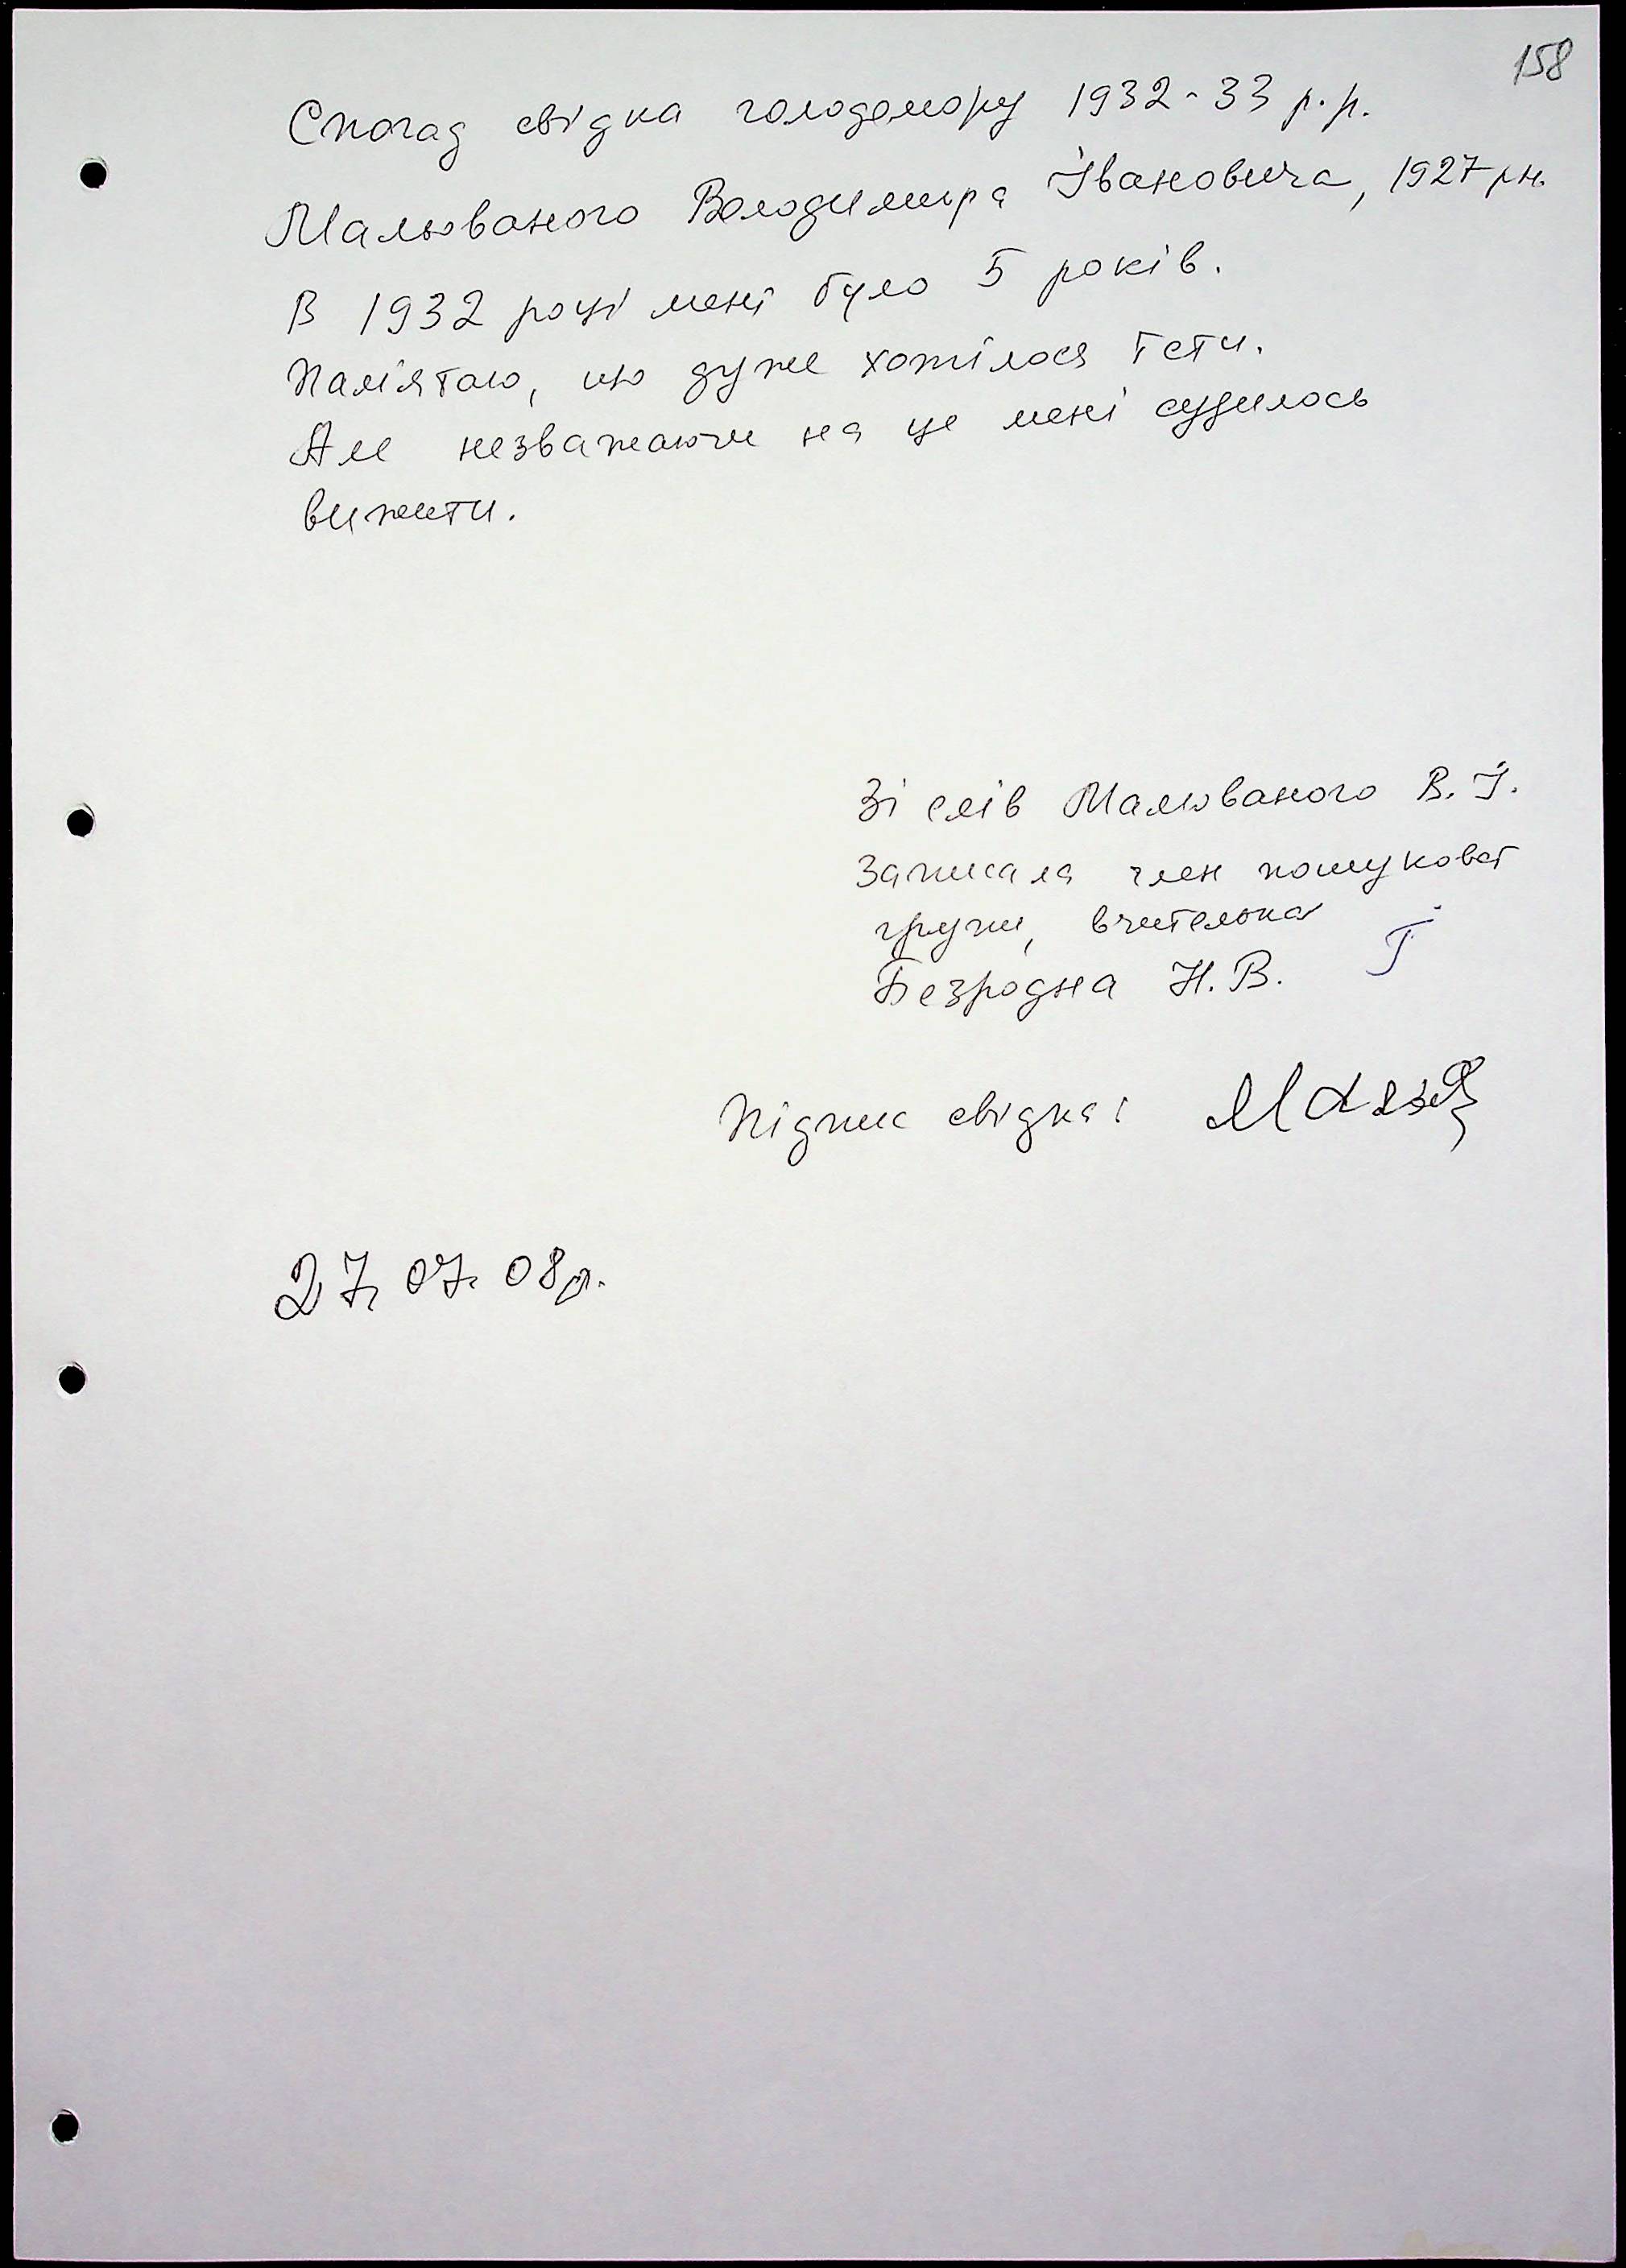 158
Спогад свідка голодомору 1932-33 р.р.
Мальованого Володимира Івановича, 1927 рн.
В 1932 році мені було 5 років.
Пам'ятаю, що дуже хотілося їсти.
Але незважаючи на це мені судилось
вижити.
Зі слів Мальованого В.І.
Записала член пошукової
групи, вчителька
Безродна Н.В.
Підпис свідка:
27.07.08р.